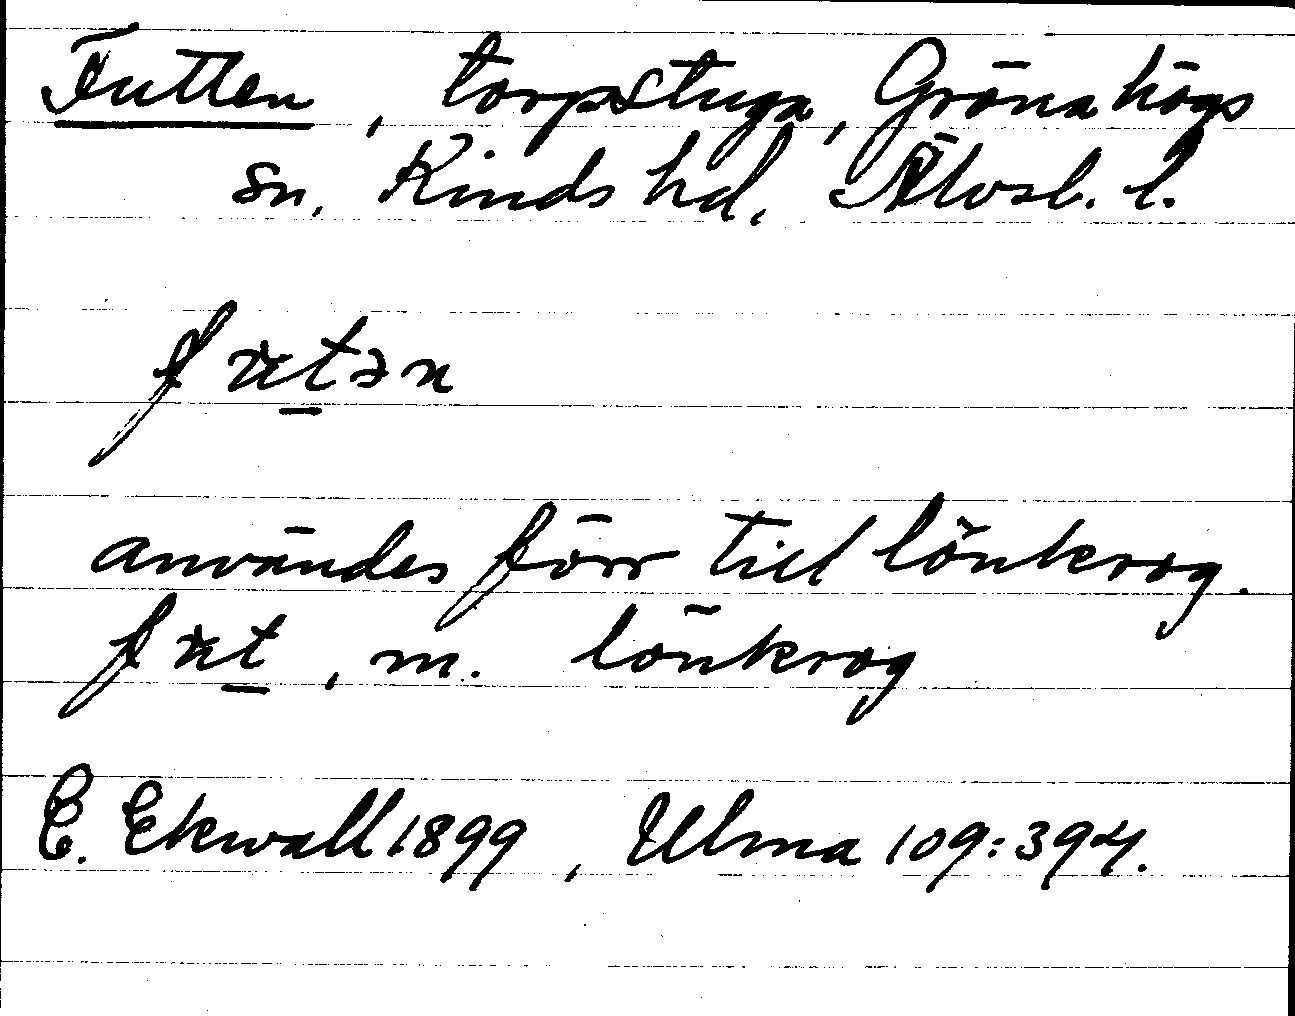 Futten, torpstuga, Grönahögs
sn, Kinds hd, Älvsb. l.
futən
användes förr till lönkrog.
fut, m. lönkrog
E. Ekwall 1899, Ulma 109:394.